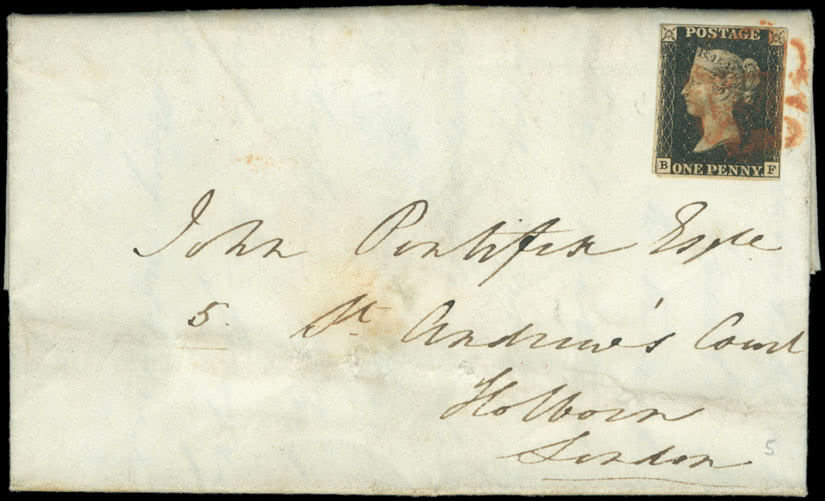 POSTAGE
B F
ONE PENNY
John Pontifex Esqre
5. St Andrew's Court
Holborn
London
5